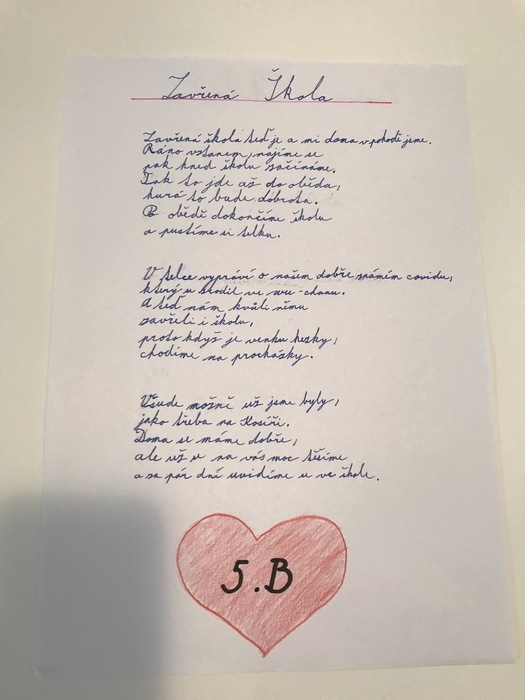 Zavřená Škola
Zavřená škola teď je a mi doma v pohodě jsme.
Ráno vstanem, najíme se
pak hned školu začínáme.
Tak to jde až do oběda,
hurá to bude dobrota.
Po obědě dokončíme školu
a pustíme si telku.
V telce vypráví o našem dobře známém covidu,
který u škodil ve wu-chanu.
A teď nám kvůli němu
zavřeli i školu,
proto když je venku hezky,
chodíme na procházky.
Všude možně už jsme byly,
jako třeba na Kosíři.
Doma se máme dobře,
ale už se na vás moc těšíme
a za pár dní uvidíme se ve škole.
5.B